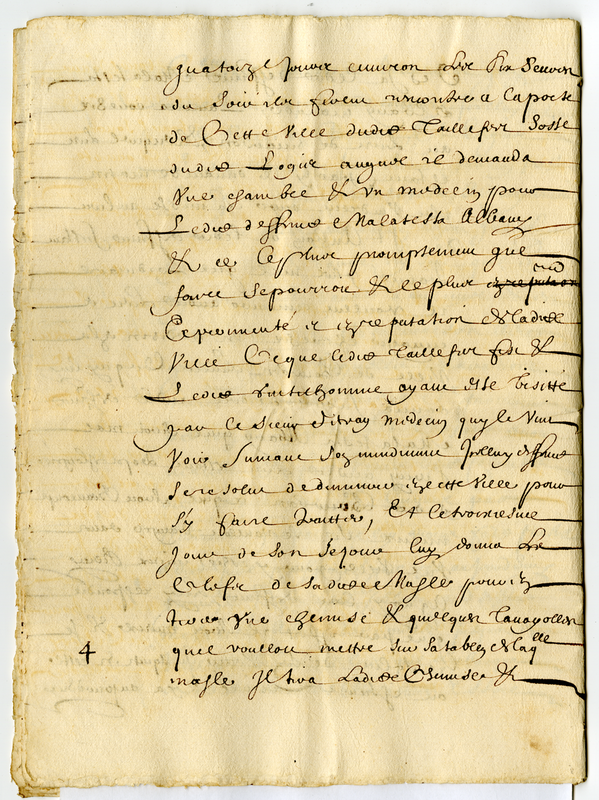 quatorze jours environ les six heures
du soir ils furent rencontrer a la porte
de Cette Ville dudit Taillefer hoste
dudit Logis auquel il demanda
une chambre & un medecin pour
Ledit deffunt Malatesta Albany
& ce le plus promptement que
faire se pourroit & le plus
Experimenté & en reputation de ladite
Ville Ce que ledit Taillefer fist &
Ledit gentilhomme ayant esté visitté
par le sieur medecin quy le vint
voir suivant son mandement Icelluy deffunt
se resolut de demeurer en cette Ville pour
s'y faire traitter, Et le troiziesme
Jour de son sejour luy donna les
Clefs de sadite Malle pour en
tirer une chemise & quelques
quil voulloit mettre sur sa table de laqlle
malle Il tira Ladite Chemise &
4